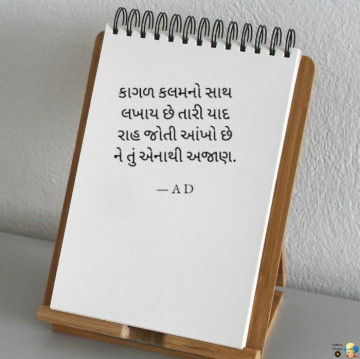 કાગળ કલમનો સાથ
લખાય છે તારી યાદ
રાહ જોતી આંખો છે
ને તું એનાથી અજાણ.
— A D